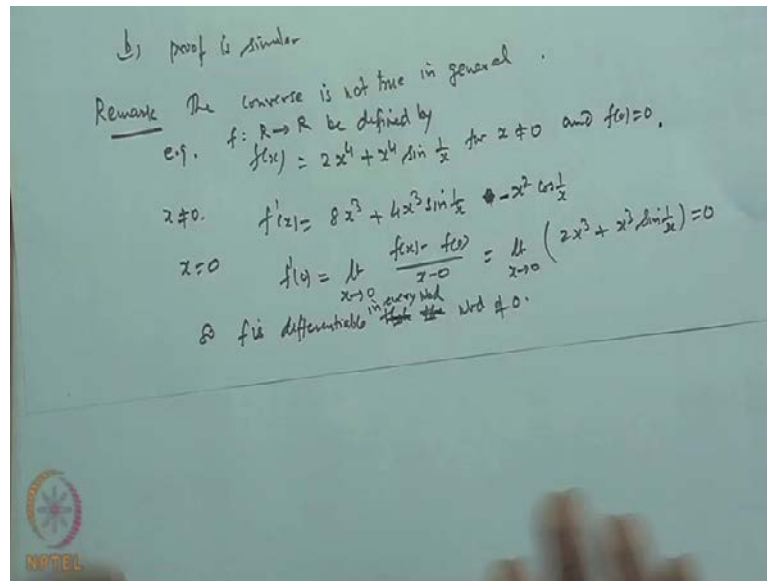 b) proof is similar
Remark The converse is not true in general.
e.g. f: R→R be defined by
f(x) = 2x⁴ + x⁴ sin 1/x for x ≠ 0 and f(0)=0.
x≠0. f'(x) = 8x³ + 4x³ sin 1/x - x² cos 1/x
x=0 f'(0) = lt x→0 f(x) - f(0) / x-0 = lt x→0 (2x³ + x³ sin 1/x) = 0
So f is differentiable in every nbd nbd of 0.
NPTEL